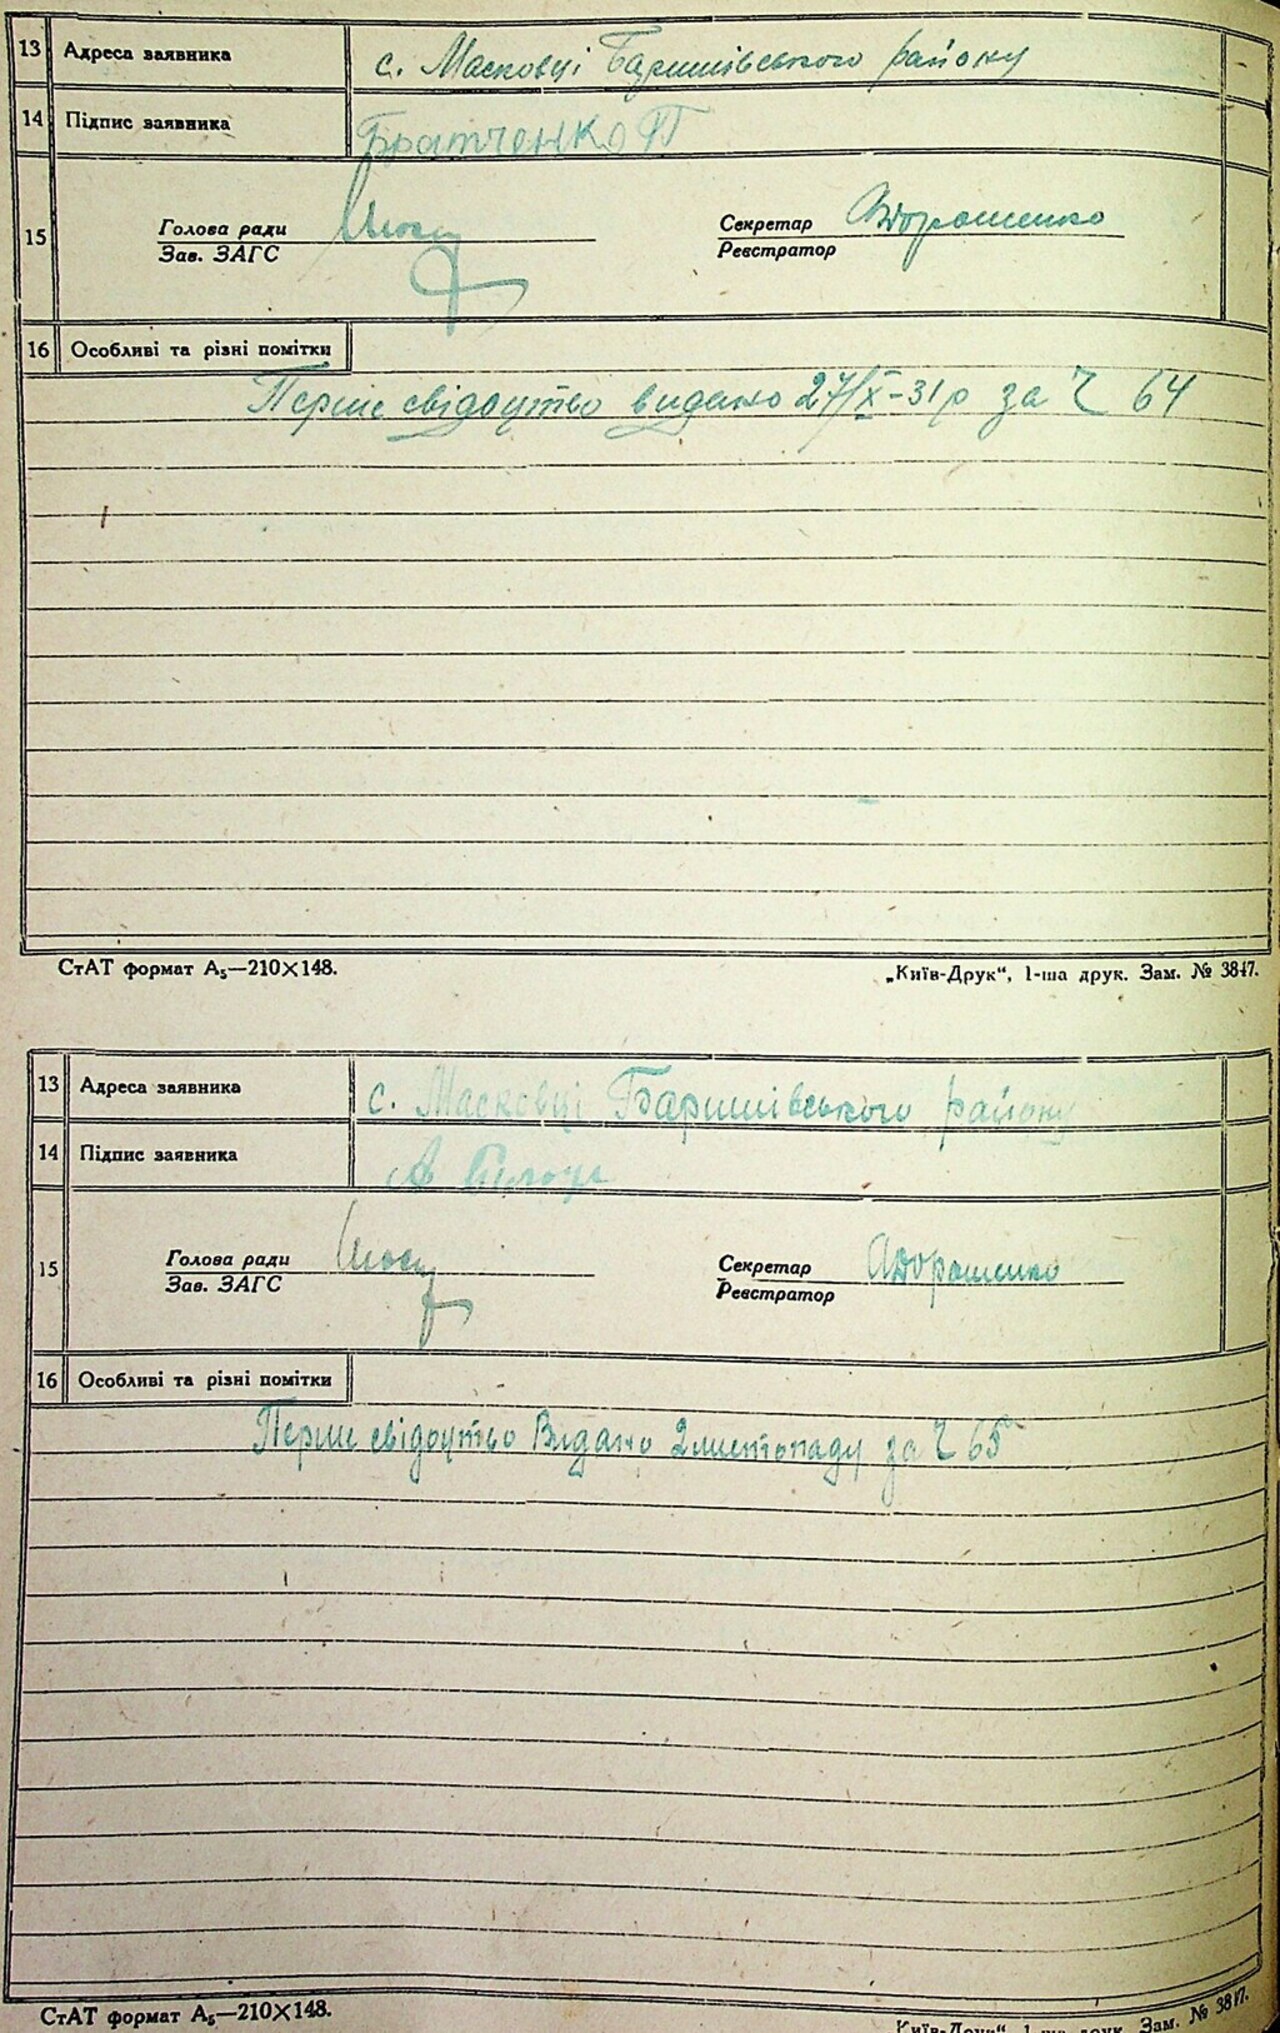 13 Адреса заявника с. Масковці Баришівського району
14 Підпис заявника Братченко П
15 Голова ради Секретар Дорошенко
Зав. ЗАГС Реєстратор
16 Особливі та різні помітки
Перше свідоцтво видано 27/X-31 р за Ч 64
СтАТ формат А₅—210×148. „Київ-Друк“, 1-ша друк. Зам. № 3847.
13 Адреса заявника с. Масковці Баришівського району
14 Підпис заявника А
15 Голова ради Секретар АДорошенко
Зав. ЗАГС Реєстратор
16 Особливі та різні помітки
Перше свідоцтво Видано 2 листопаду за Ч 65
СтАТ формат А₅—210×148. „Київ-Друк“, 1-ша друк. Зам. № 3847.